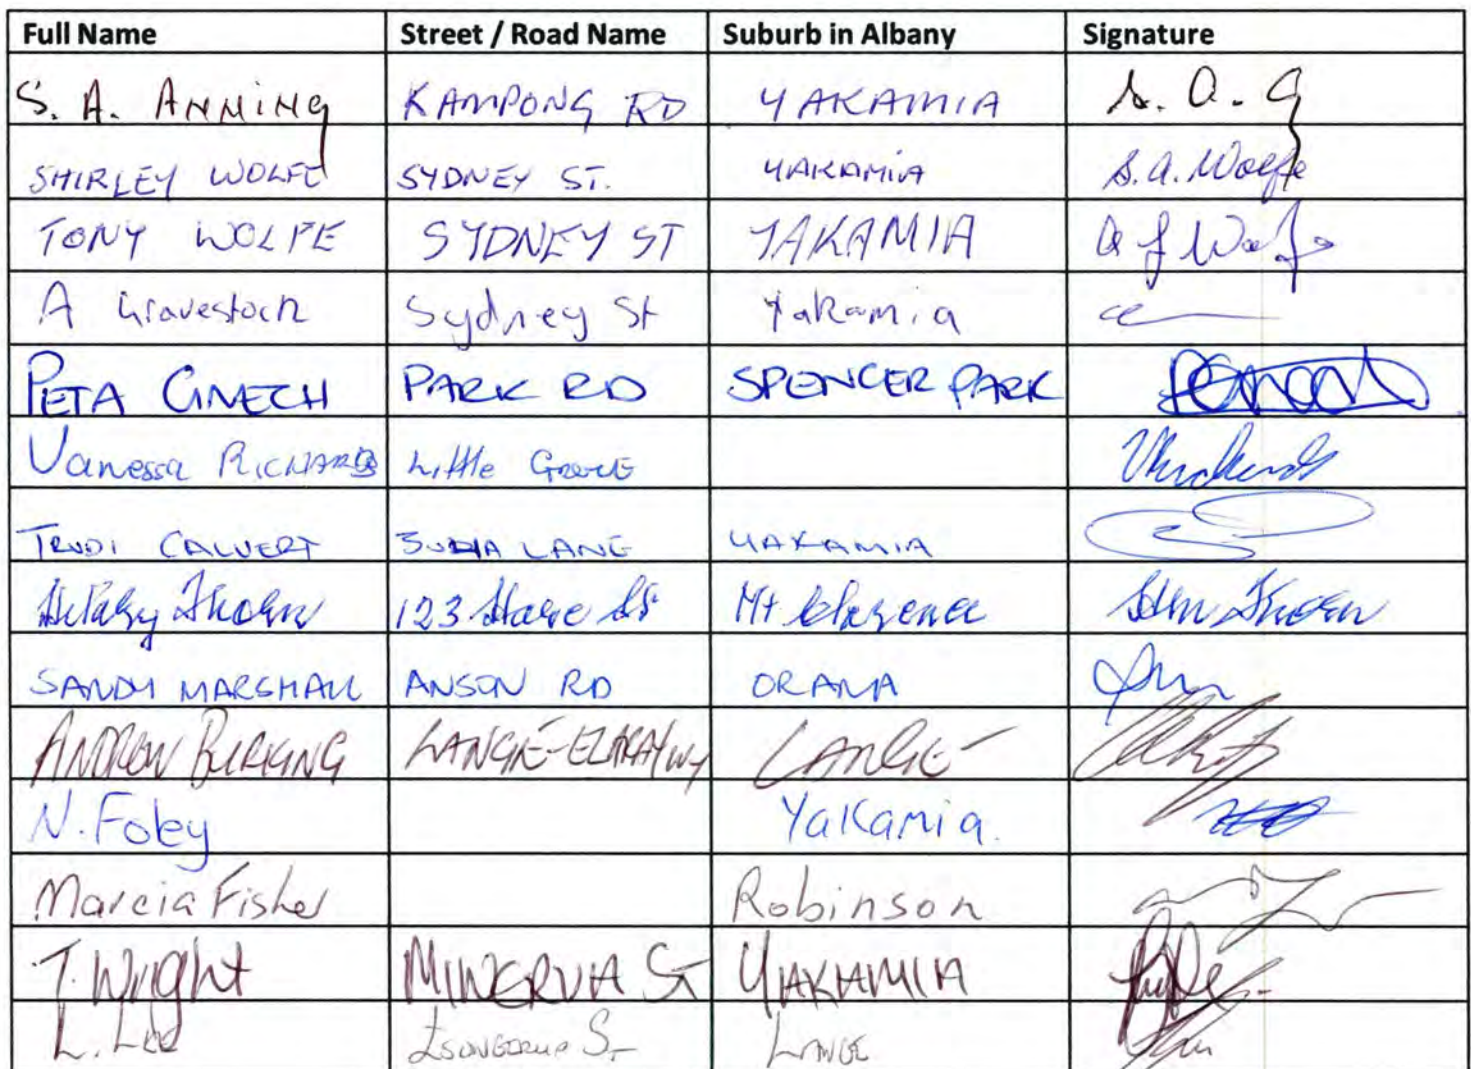 Full Name Street / Road Name Suburb in Albany Signature
S. A. ANNING KAMPONG RD YAKAMIA S. A. A
SHIRLEY WOLFE SYDNEY ST. YAKAMIA S. A. Wolfe
TONY WOLFE SYDNEY ST YAKAMIA
A Gravestock Sydney St Yakamia
PETA PARK RD SPENCER PARK
Vanessa RICHARDS Little GROVE
TRUDI CALVERT LANE YAKAMIA
Thorn 123 St Mt Clarence
SANDY MARSHALL ANSON RD ORANA
ANDREW LANGE
N. Foley Yakamia.
Marcia Fisher Robinson
T. Wright MINERVA ST YAKAMIA
L. Lee LANGE